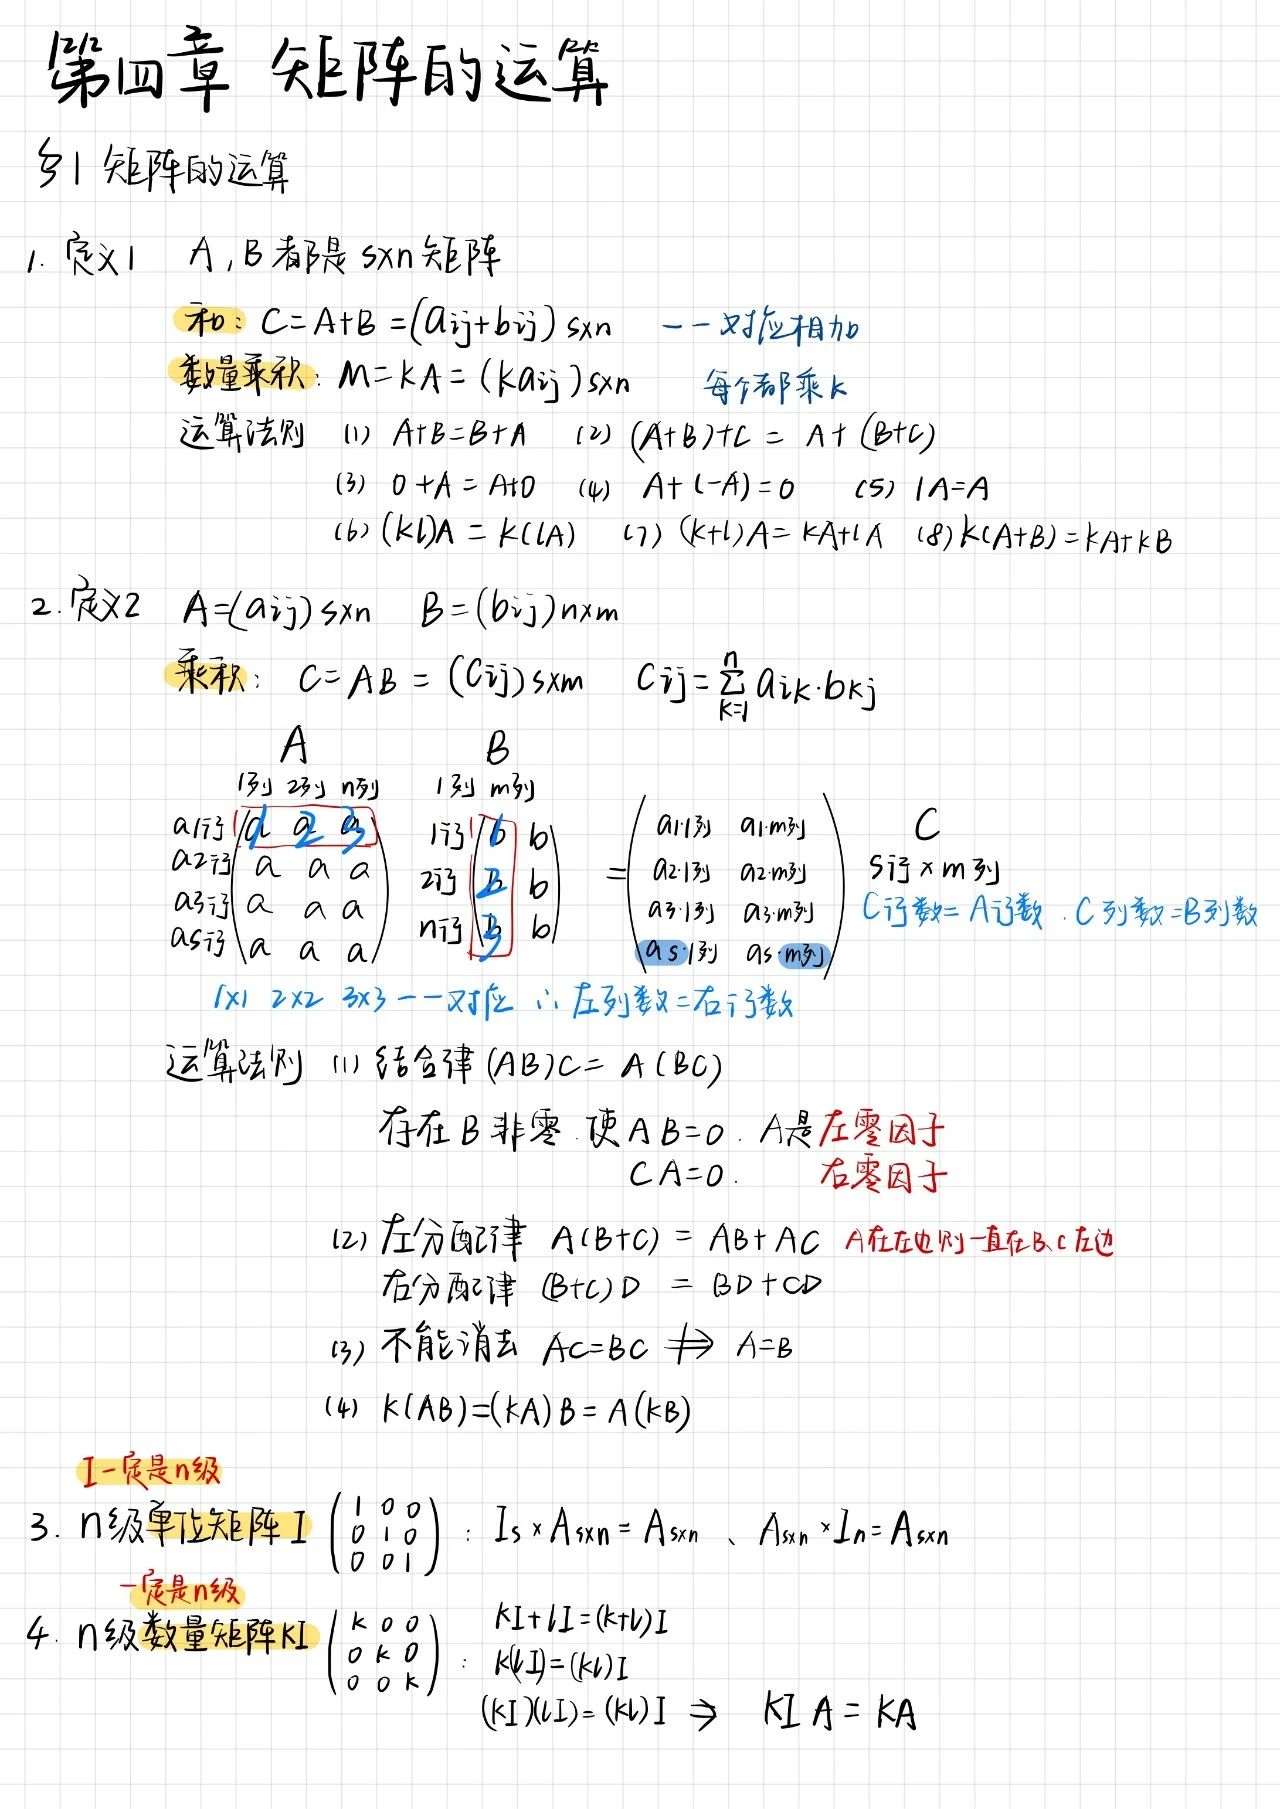 第四章 矩阵的运算
§1 矩阵的运算
1. 定义1 A,B都是s×n矩阵
和: C=A+B=(aij+bij)s×n 一一对应相加
数量乘积: M=kA=(kaij)s×n 每个都乘k
运算法则 (1) A+B=B+A (2) (A+B)+C = A+(B+C)
(3) 0+A=A+0 (4) A+(-A)=0 (5) 1A=A
(6) (kl)A = k(lA) (7) (k+l)A=kA+lA (8) k(A+B)=kA+kB
2. 定义2 A=(aij)s×n B=(bij)n×m
乘积: C=AB=(Cij)s×m Cij=∑ⁿₖ₌₁ aik·bkj
A B
1列 2列 n列 1列 m列
a1行 a a a 1 2 3 1行 b b 1 a1·1列 a1·m列 C
a2行 a a a 2行 b b 2 = a2·1列 a2·m列 s行×m列
a3行 a a a n行 b b 3 a3·1列 a3·m列 C行数=A行数.C列数=B列数
as行 a a a as·1列 as·m列
1×1 2×2 3×3 一一对应 ∴左列数=右行数
运算法则 (1) 结合律 (AB)C= A(BC)
存在B非零.使AB=0. A是左零因子
CA=0. 右零因子
(2) 左分配律 A(B+C) = AB+AC A在左边则一直在B、C左边
右分配律 (B+C)D = BD+CD
(3) 不能消去 AC=BC ⇏ A=B
(4) k(AB)=(kA)B=A(kB)
I一定是n级
3. n级单位矩阵I (1 0 0 0 1 0 0 0 1) : Is×As×n=As×n、As×n×In=As×n
一定是n级
4. n级数量矩阵kI (k 0 0 0 k 0 0 0 k) : kI+lI=(k+l)I
k(lI)=(kl)I
(kI)(lI)=(kl)I ⇒ kI A = kA